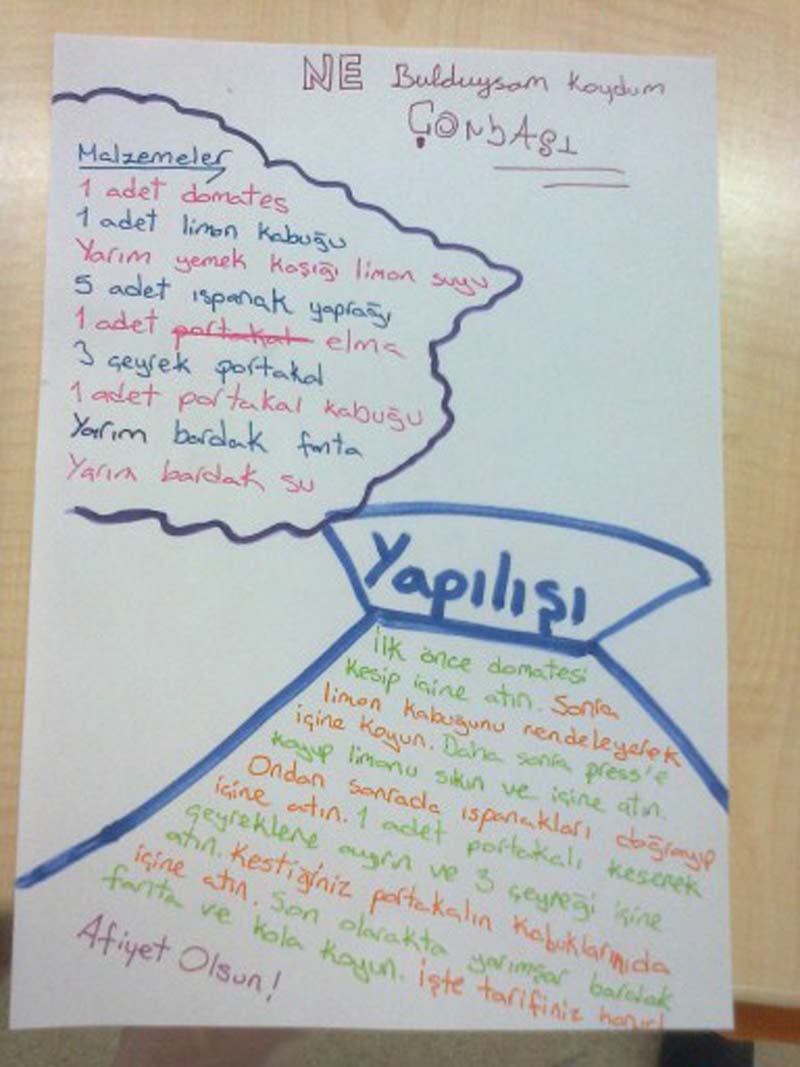 NE Bulduysam Koydum
ÇONbAŞI
Malzemeler
1 adet domates
1 adet limon kabuğu
Yarım yemek kaşığı limon suyu
5 adet ıspanak yaprağı
1 adet portakal elma
3 çeyrek portakal
1 adet portakal kabuğu
Yarım bardak fanta
Yarım bardak su
Yapılışı
İlk önce domatesi
kesip içine atın. Sonra
limon kabuğunu rendeleyerek
içine koyun. Daha sonra press'e
koyup limonu sıkın ve içine atın.
Ondan sonrada ıspanakları doğrayıp
içine atın. 1 adet portakalı keserek
çeyreklere ayırın ve 3 çeyreği içine
atın. Kestiğiniz portakalın kabuklarınıda
içine atın. Son olarakta yarımşar bardak
fanta ve kola koyun. İşte tarifiniz hazır!
Afiyet Olsun!